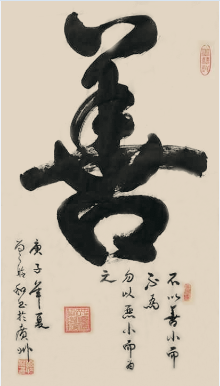 善
不以善小而
不為
勿以惡小而為
之
庚子年夏
書於廣州